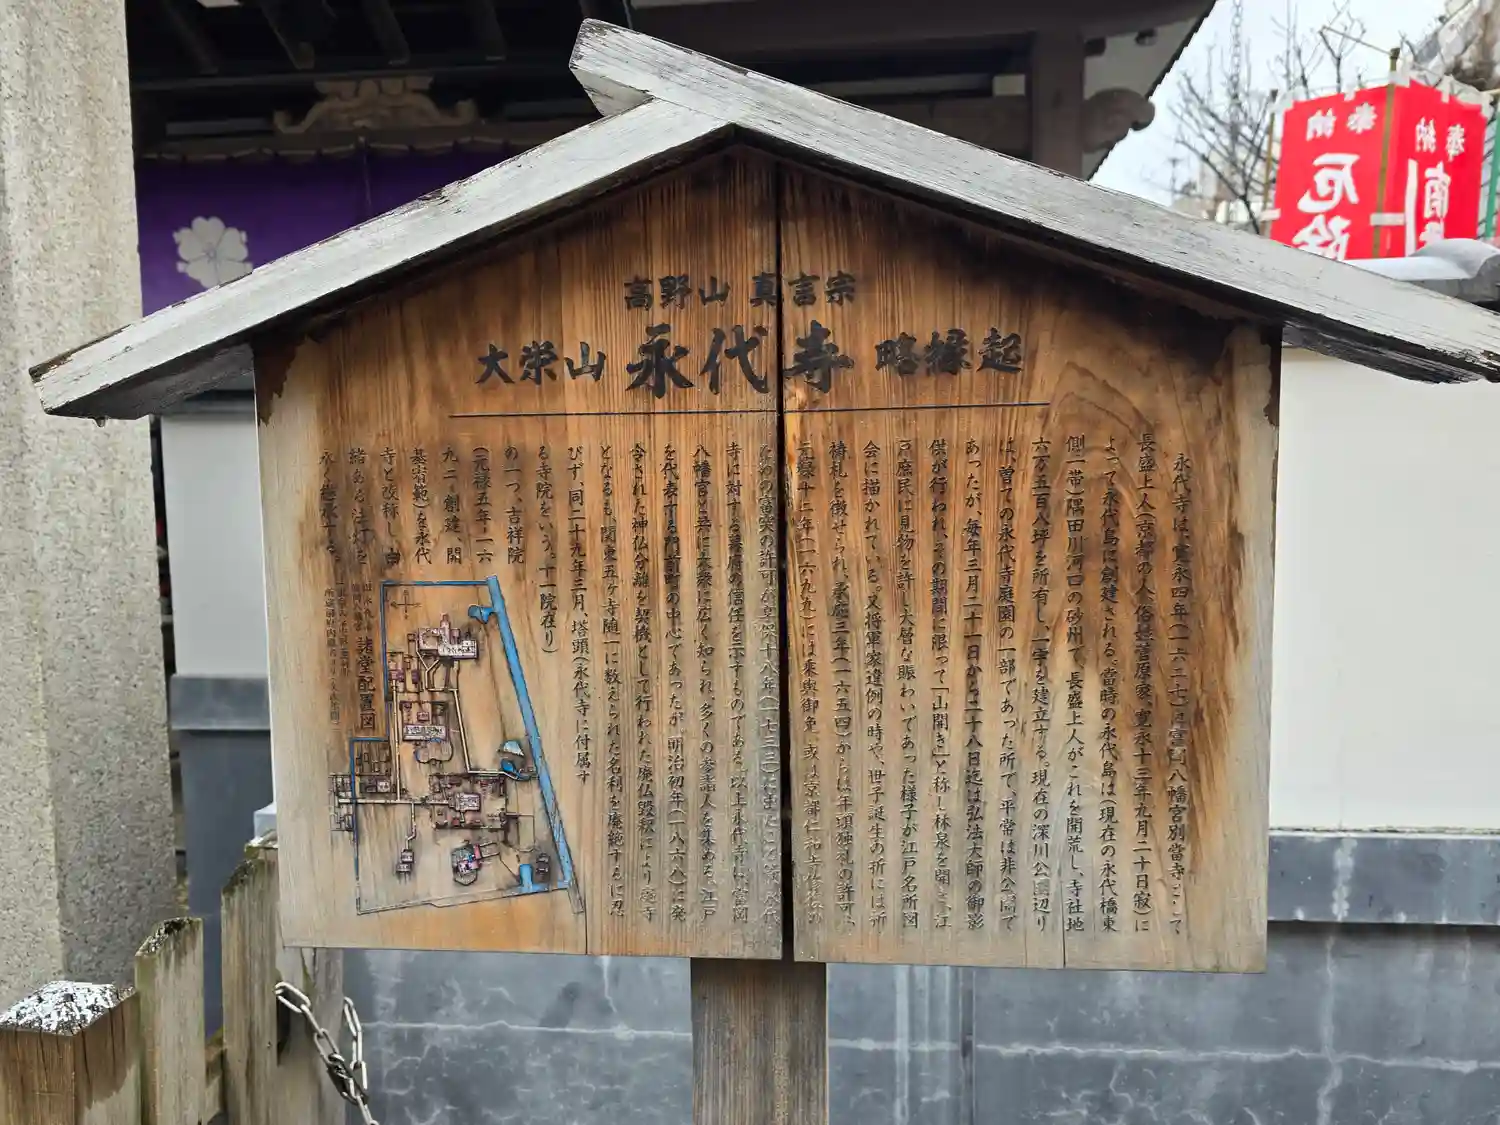 高野山 真言宗
大栄山 永代寺 略縁起
永代寺は、寛永四年(一六二七)に富岡八幡宮別當寺として
長盛上人(京都の人俗姓菅原家、寛永十三年九月二十日寂)に
よって永代島に創建される。當時の永代島は(現在の永代橋東
側一帯)隅田川河口の砂州で、長盛上人がこれを開荒し、寺社地
六万五百八坪を所有し、一宇を建立する。現在の深川公園辺り
は、曽ての永代寺庭園の一部であった所で、平常は非公開で
あったが、毎年三月二十一日から二十八日迄は弘法大師の御影
供が行われ、その期間に限って「山開き」と称し林泉を開き、江
戸庶民に見物を許し大層な賑わいであった様子が江戸名所図
会に描かれている。又将軍家違例の時や、世子誕生の折には祈
祷札を徴せられ、承応三年(一六五四)からは年頃独礼の許可、
元禄十二年(一六九九)には乗輿御免、或は京都仁和寺
ための富突の許可が享保十八年(一七三三)に
寺に対する幕府の信任を示すものである。以上永代寺は、富岡
八幡宮と共に大衆に広く知られ、多くの参詣人を集める、江戸
を代表する門前町の中心であったが、明治初年(一八六八)に発
令された神仏分離を契機として行われた廃仏毀釈により、廃寺
となるも、関東五ケ寺随一に数えられた名刹を廃絶するに忍
びず、同二十九年三月、塔頭(永代寺に付属す
る寺院をいう。十一院在り)
の一つ、吉祥院
(元禄五年・一六
九二・創建、開
基宥範)を永代
寺と改称し、由
緒ある法灯を
永く継承する。
諸堂配置図
奉納
厄除
奉納